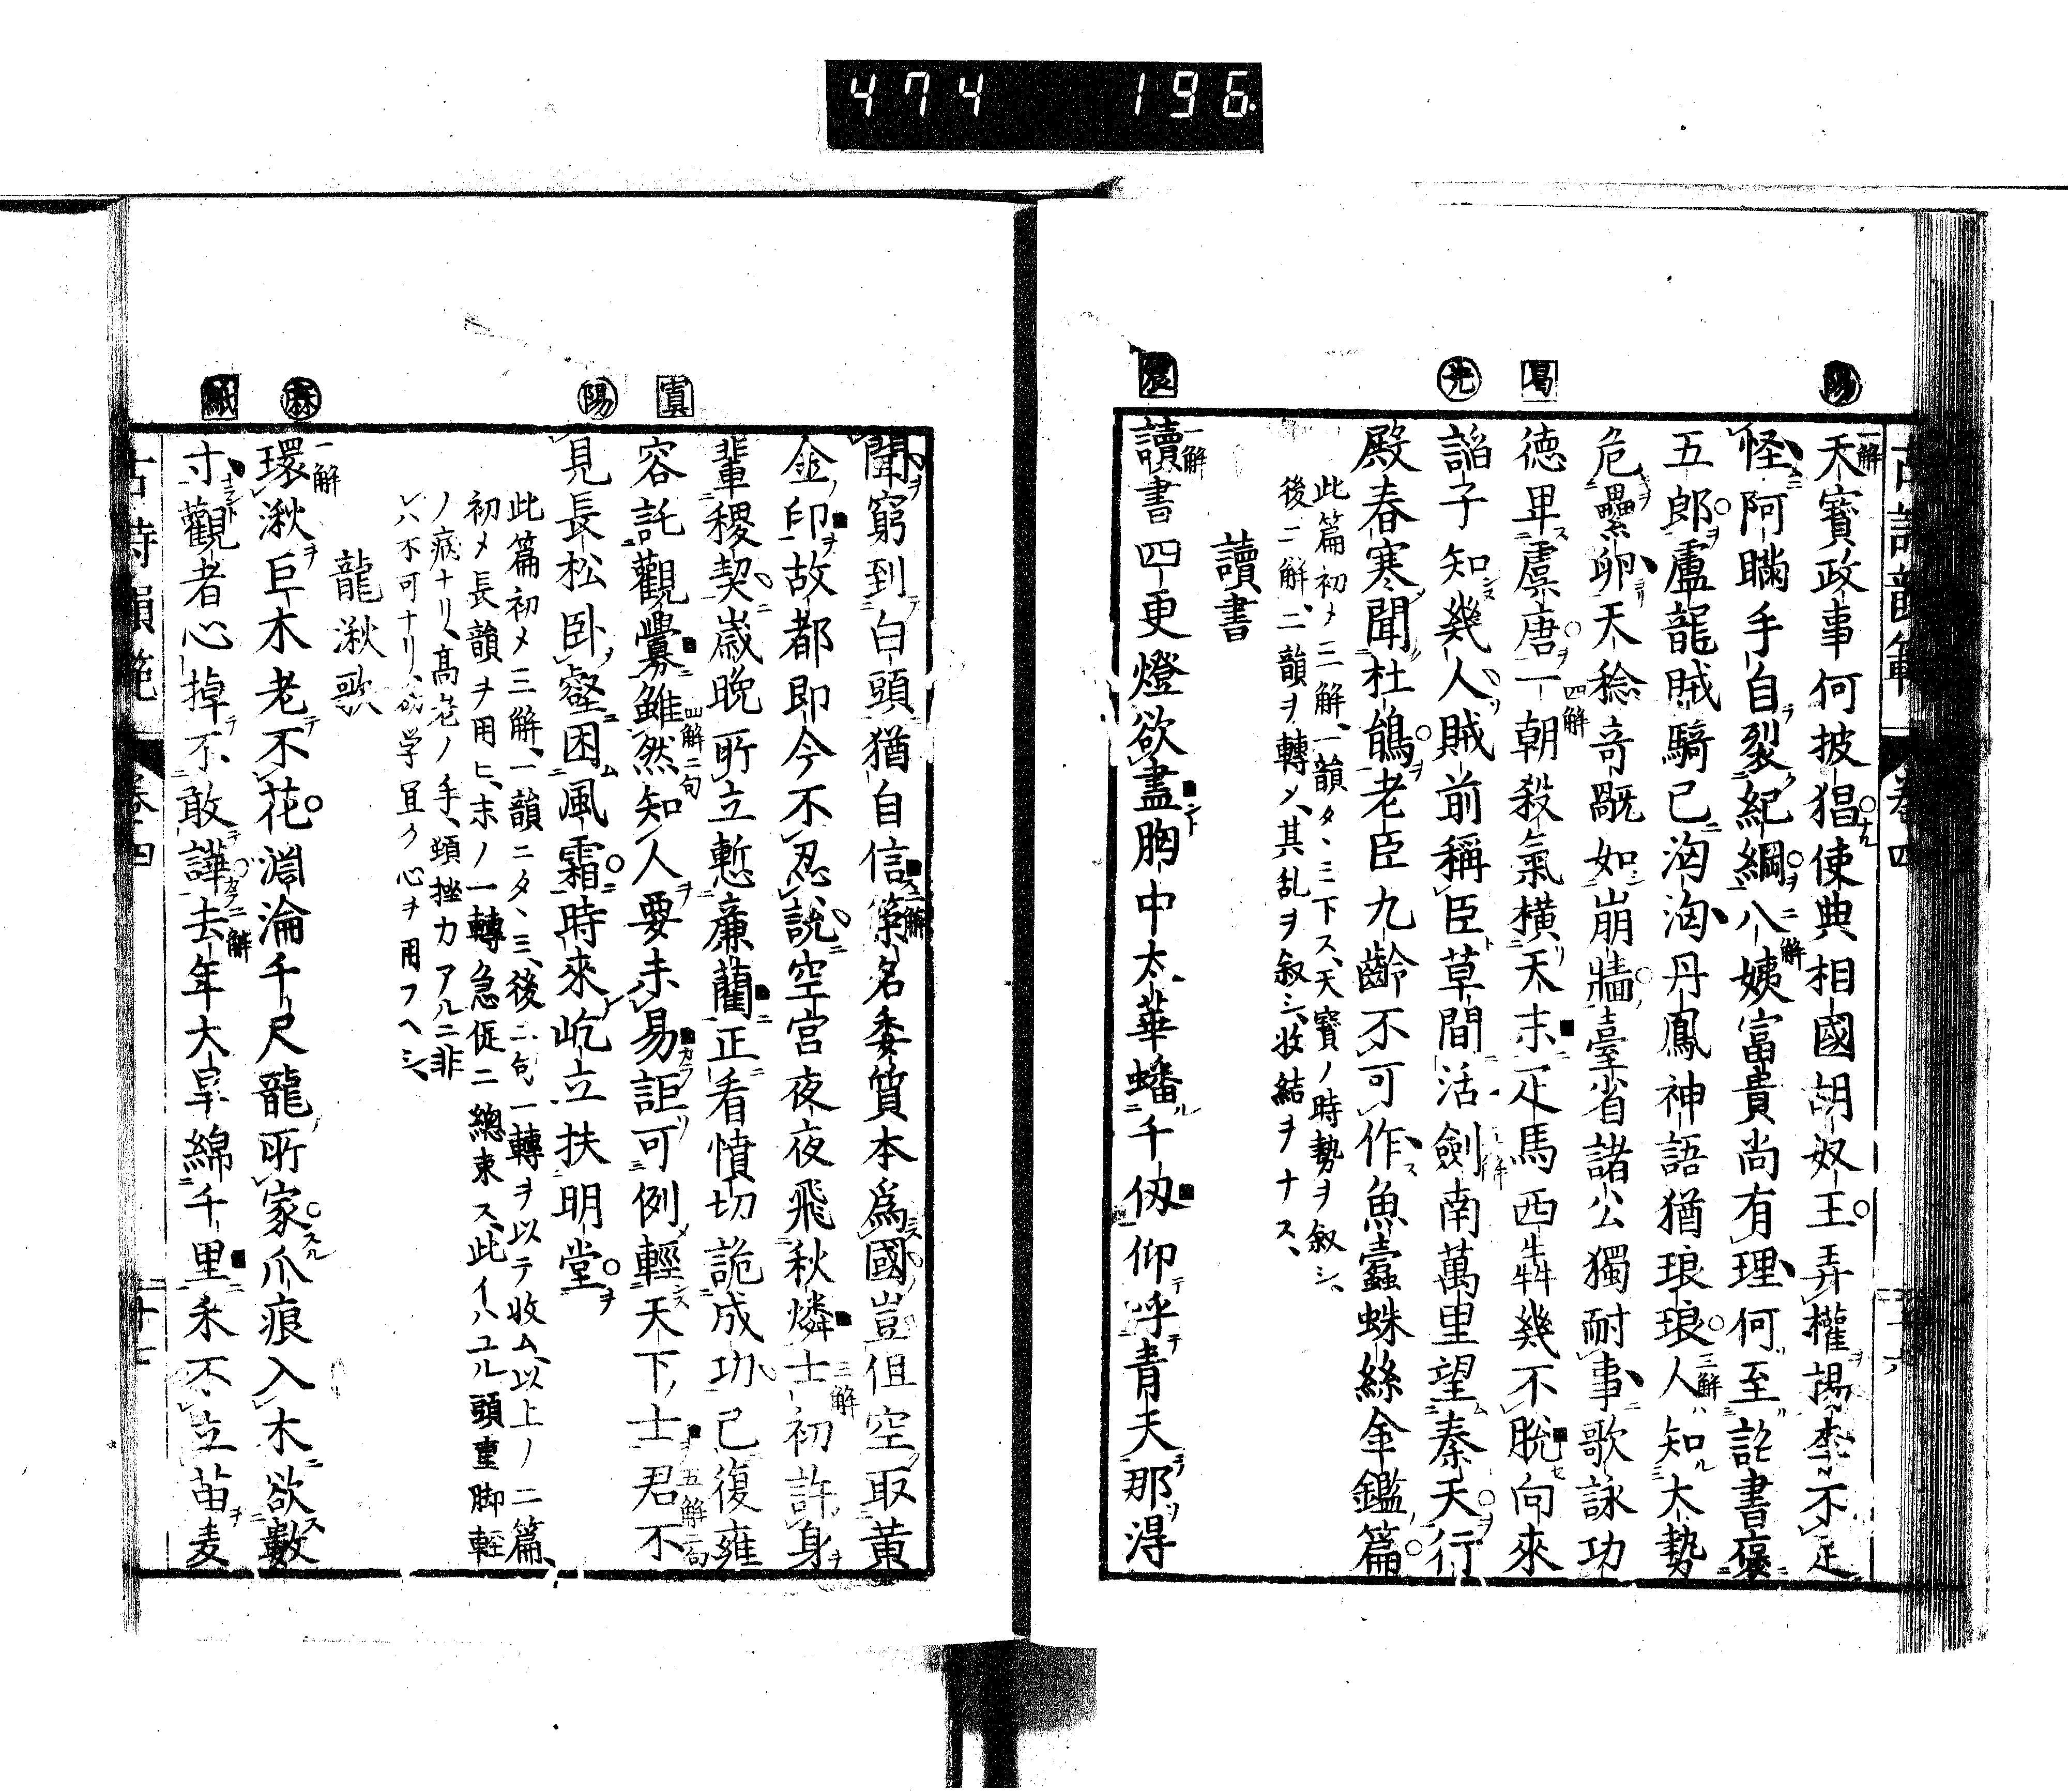 474 196
古詩韻範 卷四
陽
葛
先
震
天寳政事何披猖使典相國胡奴王弄權謁李不足
怪阿瞞手自裂紀綱八姨富貴尚有理何至詔書褒
五郎盧龍賊騎已洶洶丹鳳神語猶琅琅人知大勢
危壘卵天稔奇敺如崩牆臺省諸公獨耐事歌詠功
德卑虞唐一朝殺氣橫天末疋馬西犇幾不脫向來
諂子知幾人賊前稱臣草間活劍南萬里望秦天行
殿春寒聞杜鵑老臣九齡不可作魚蠹蛛絲金鑑篇
此篇初メ三解、一韻タ、ミ下ス、天寶ノ時勢ヲ叙シ、
後二解、二韻ヲ轉シ、其乱ヲ叙シ、收結ヲナス、
讀書
讀書四更燈欲盡胸中太華蟠千仞仰呼青天那得
虞
陽
麻
紙
聞窮到白頭猶自信策名委質本爲國豈但空取黃
金印故都即今不忍說空宮夜夜飛秋燐士初許身
輩稷契歲晩所立慙廉藺正看憤切詭成功已復雍
容託觀釁雖然知人要未易詎可例輕天下士君不
見長松臥壑困風霜時來屹立扶明堂
此篇初メ三解、一韻ニタ、ミ、後二句一轉ヲ以テ收ム、以上ノ二篇、
初メ長韻ヲ用ヒ、末ノ一轉急促ニ總束ス、此イハユル頭重脚輕
ノ病ナリ、高老ノ手、頭挫力アルニ非
レハ不可ナリ、初学宜ク心ヲ用フヘシ、
龍湫歌
環湫巨木老不花淵淪千尺龍所家爪痕入木欲數
寸觀者心掉不敢譁去年大旱綿千里禾不立苗麦
古詩韻範 卷四